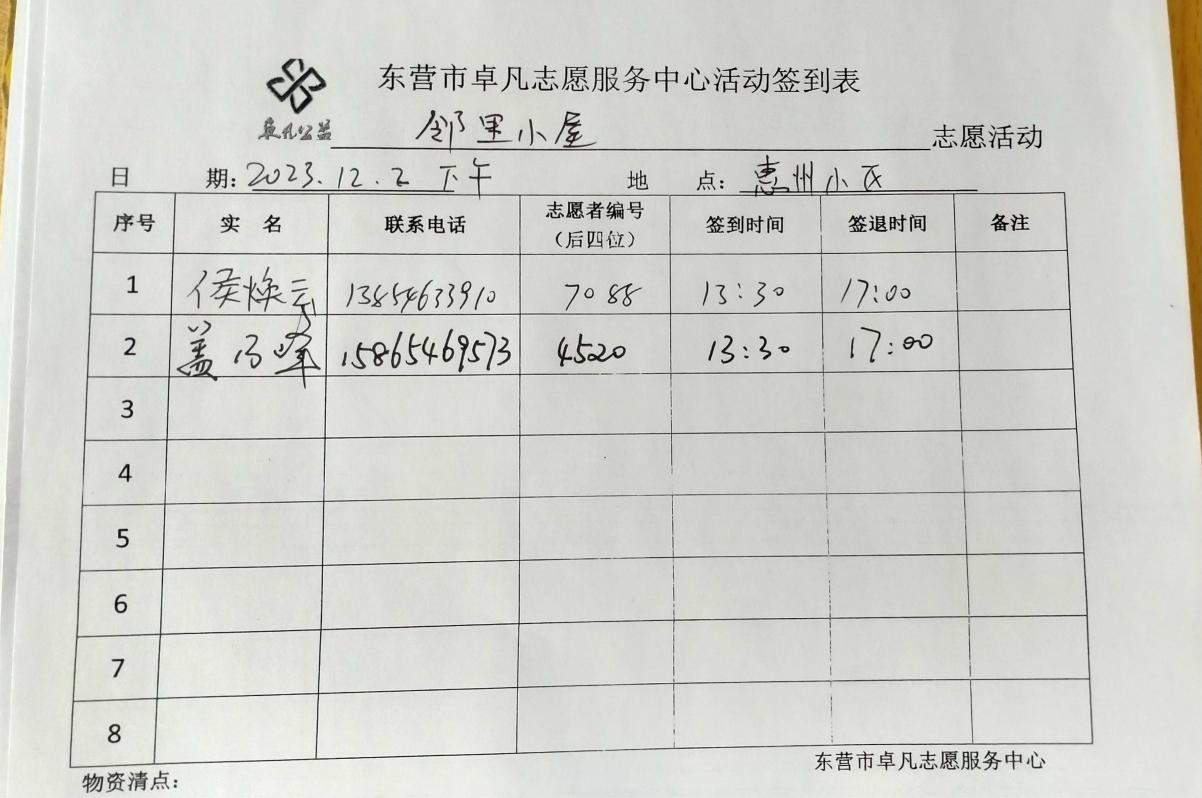 东营市卓凡志愿服务中心活动签到表
卓凡公益 邻里小屋 志愿活动
日 期：2023.12.2 下午 地 点：惠州小区
序号 实 名 联系电话 志愿者编号（后四位） 签到时间 签退时间 备注
1 侯焕云 13854633910 7088 13:30 17:00
2 盖 峰 15865469573 4520 13:30 17:00
3
4
5
6
7
8
东营市卓凡志愿服务中心
物资清点：